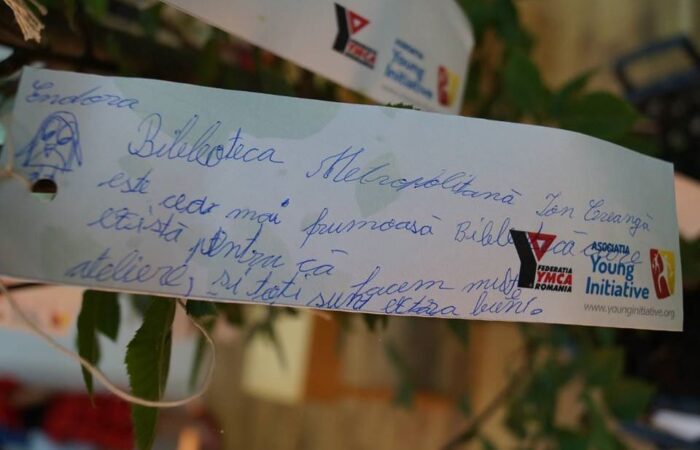 YMCA
ASOCIATIA
Young
Initiative
Endora
Biblioteca Metropolitană Ion Creangă
este cea mai frumoasă Bibliotecă care
există pentru că facem multe
ateliere, si toți sunt extra buni.
FEDERATIA
YMCA
ROMANIA
ASOCIATIA
Young
Initiative
www.younginitiative.org